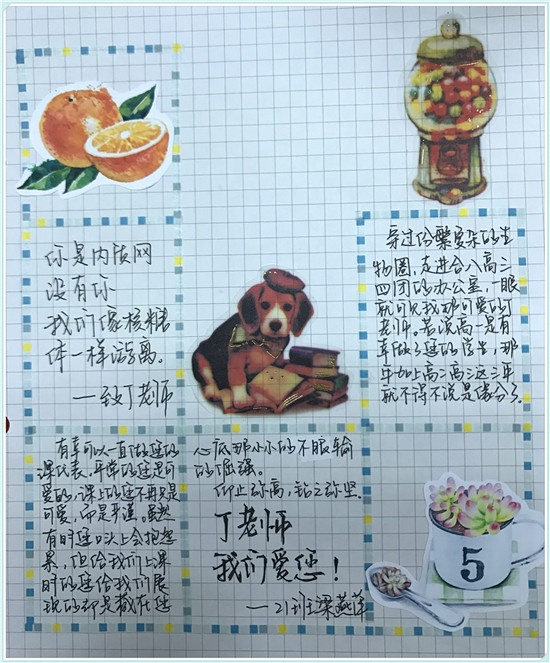 你是内质网
没有你
我们像核糖
体一样游离。
—致丁老师
穿过纷繁复杂的生
物圈,走进合八高三
四团的办公室,一眼
就可见我那可爱的丁
老师。若说高一是有
幸做了您的学生,那
年加上高二高三这三年
就不得不说是缘分了。
有幸可以一直做您的
课代表。平常的您是可
爱的,课上的您不再只是
可爱,而是严谨。虽然
有时您口头上会抱怨
累,但给我们上课
时的您给我们展
现的却是藏在您
心底那小小的不服输
的倔强。
仰止弥高,钻之弥坚。
丁老师
我们爱您!
—21班梁燕萍
5